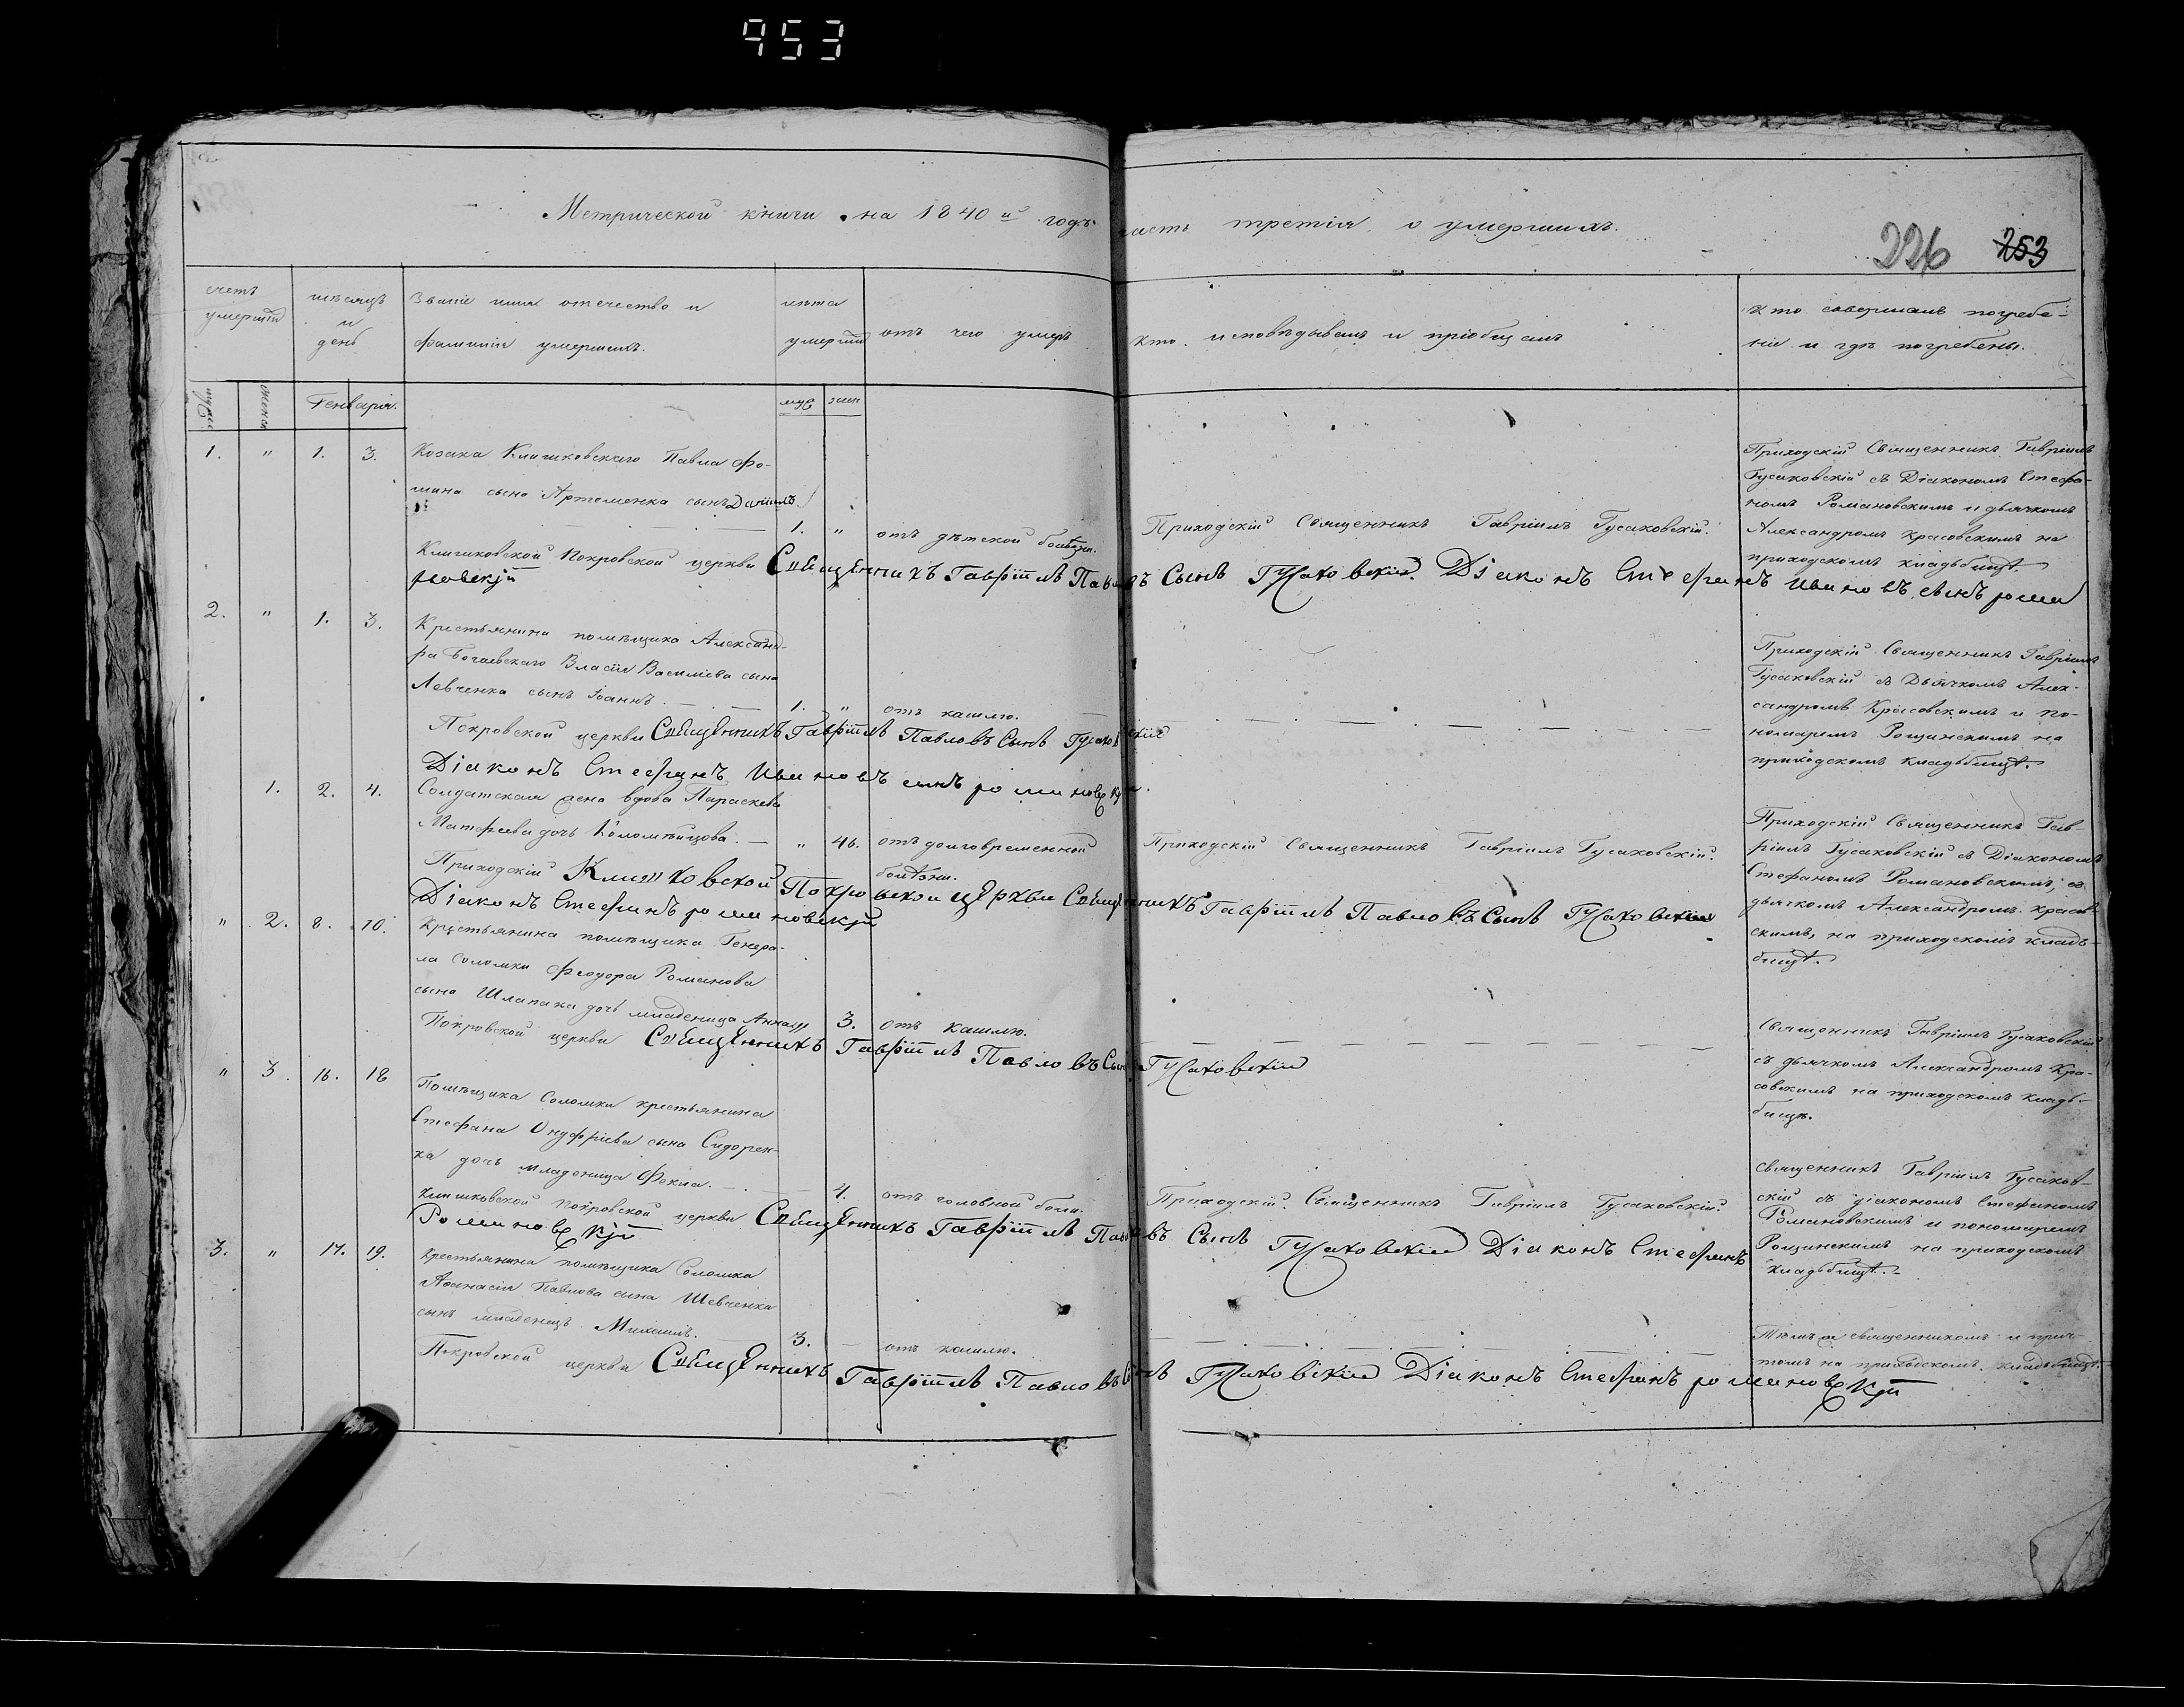 953
Метрической книги на 1840й годъ часть третія о умершихъ.
226 253
счетъ умершихъ
мѣсяцъ и день
Званіе имя отечество и фамилія умершихъ.
лѣта умершихъ
отъ чего умеръ
кто исповѣдывалъ и пріобщалъ
кто совершалъ погребе-
ніе и гдѣ погребены.
Генваря.
муж жен
1. " 1. 3.
Козака Клишковскаго Павла Фо-
мина сына Артеменка сынъ Даніилъ
1. " отъ дѣтской болѣзни.
Приходскій Священникъ Гавріилъ Гусаковскій.
Приходскій Священникъ Гавріилъ
Гусаковскій съ Діакономъ Стефа-
номъ Романовскимъ и дьячкомъ
Александромъ Красовскимъ на
приходскомъ кладьбищѣ.
Клишковской Покровской церкви Священникъ Гавріилъ Павловъ Сынъ Гусаковскій. Діаконъ Стефанъ Ивановъ сынъ рома
новскій
2. " 1. 3.
Крестьянина помѣщика Александ-
ра Богаевскаго Власія Василіева сына
Левченка сынъ Іоаннъ.
1. " отъ кашлю.
Приходскій Священникъ Гавріилъ
Гусаковскій съ Дьячкомъ Алек-
сандромъ Красовскимъ и по-
номаремъ Рощинскимъ на
приходскомъ кладьбищѣ.
Покровской церкви Священникъ Гавріилъ Павловъ Сынъ Гусаковскій
Діаконъ Стефанъ Ивановъ сынъ романовскій.
1. 2. 4.
Солдатская жена вдова Параскева
Матфеева дочь Коломѣйцова.
" 46. отъ долговременной
болѣзни.
Приходскій Священникъ Гавріилъ Гусаковскій.
Приходскій Священникъ Гав-
ріилъ Гусаковскій съ Діакономъ
Стефаномъ Романовскимъ, съ
дьячкомъ Александромъ Красов-
скимъ, на приходскомъ кладь-
бищѣ.
Приходскій Клишковской Покровской церкви Священникъ Гавріилъ Павловъ Сынъ Гусаковскій
Діаконъ Стефанъ романовскій
" 2. 8. 10.
Крестьянина помѣщика Генера-
ла Соломки Феодора Романова
сына Шлапака дочь младеница Анна
" 3. отъ кашлю.
Священникъ Гавріилъ Гусаковскій
съ дьячкомъ Александромъ Кра-
совскимъ на приходскомъ кладь-
бищѣ.
Покровской церкви Священникъ Гавріилъ Павловъ Сынъ Гусаковскій
" 3. 16. 18
Помѣщика Соломки крестьянина
Стефана Онуфріева сына Сидорен-
ка дочь младеница Фекла.
4. отъ головной боли.
Приходскій Священникъ Гавріилъ Гусаковскій.
Священникъ Гавріилъ Гусаков-
скій съ діакономъ Стефаномъ
Романовскимъ и пономаремъ
Рощинскимъ на приходскомъ
кладьбищѣ.
Клишковской Покровской церкви Священникъ Гавріилъ Павловъ Сынъ Гусаковскій Діаконъ Стефанъ
Романовскій
3. " 17. 19.
Крестьянина помѣщика Соломка
Афанасія Павлова сина Шевченка
сынъ младенецъ Михаилъ.
3. отъ кашлю.
Тѣмъ же священникомъ и прич-
томъ на приходскомъ кладьбищѣ.
Покровской церкви Священникъ Гавріилъ Павловъ Сынъ Гусаковскій Діаконъ Стефанъ романовскій